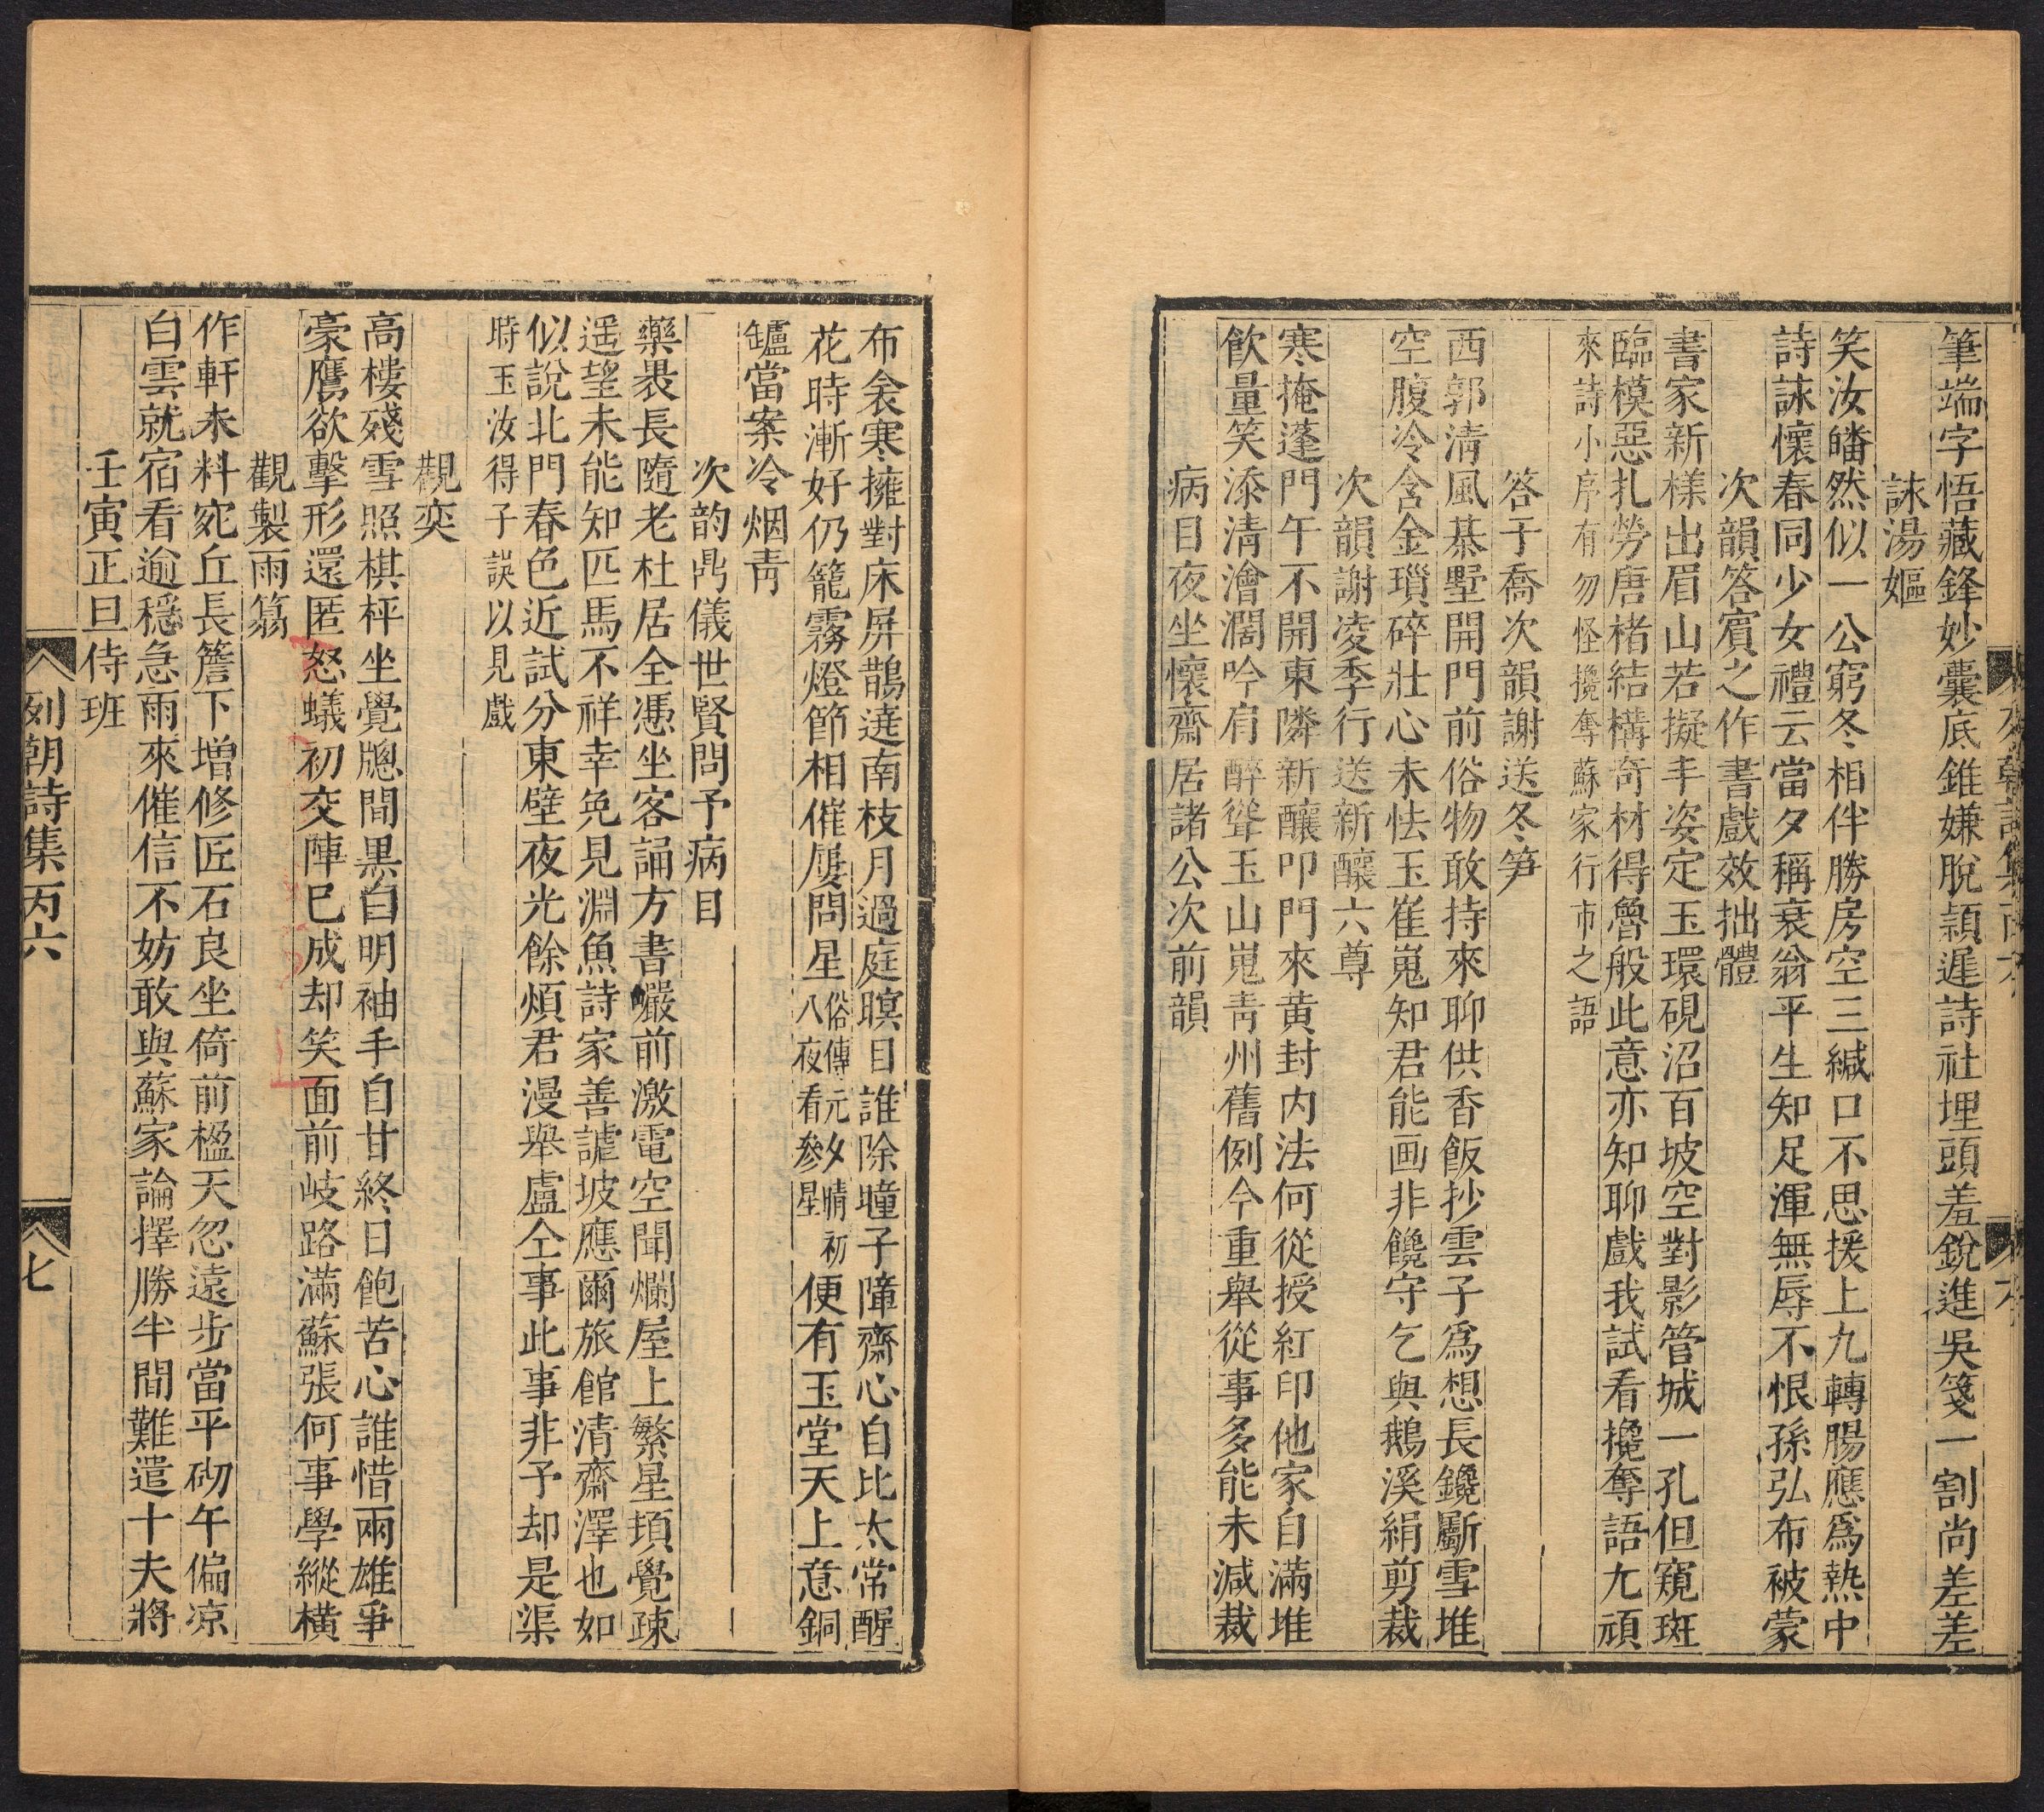 筆端字悟藏鋒妙囊底錐嫌脫穎遲詩社埋頭羞銳進吳箋一割尚差差
誅湯嫗
笑汝皤然似一公窮冬相伴勝房空三緘口不思援上九轉腸應爲熱中
詩誅懷春同少女禮云當夕稱衰翁平生知足渾無辱不恨孫弘布被蒙
次韻答賓之作書戲效拙體
書家新樣出眉山若擬丰姿定玉環硯沼百坡空對影管城一孔但窺斑
臨模惡扎勞唐楮結構奇材得魯般此意亦知聊戲我試看攙奪語尢頑
來詩小序有勿怪攙奪蘇家行市之語
答于喬次韻謝送冬笋
西郭淸風棊墅開門前俗物敢持來聊供香飯抄雲子爲想長鑱斸雪堆
空腹冷含金瑣碎壯心未怯玉崔嵬知君能画非饞守乞與鵝溪絹剪裁
次韻謝凌季行送新釀六尊
寒掩蓬門午不開東隣新釀叩門來黄封内法何從授紅印他家自滿堆
飮量笑添淸澮濶吟肩醉聳玉山嵬靑州舊例今重舉從事多能未減裁
病目夜坐懷齋居諸公次前韻
布衾寒擁對床屛鵲遶南枝月過庭瞑目誰除曈子障齋心自比太常醒
花時漸好仍籠霧燈節相催屢問星俗傳元夕晴初八夜看參星便有玉堂天上意銅
鑪當案冷烟靑
次韵鼎儀世賢問予病目
藥裹長隨老杜居全憑坐客誦方書巗前激電空聞爛屋上繁星頊覺疎
遥望未能知匹馬不祥幸免見淵魚詩家善謔坡應爾旅館清齋澤也如
似說北門春色近試分東壁夜光餘煩君漫舉盧仝事此事非予却是渠
時玉汝得子誤以見戲
觀奕
高樓殘雪照棋枰坐覺牎間黒白明袖手自甘終日飽苦心誰惜兩雄爭
豪鷹欲擊形還匿怒蟻初交陣已成却笑面前岐路滿蘇張何事學縱横
觀製雨篛
作軒未料宛丘長簷下增修匠石良坐倚前楹天忽遠步當平砌午偏凉
白雲就宿看逾穩急雨來催信不妨敢與蘇家論擇勝半間難遣十夫將
壬寅正旦侍班
列朝詩集丙六
七